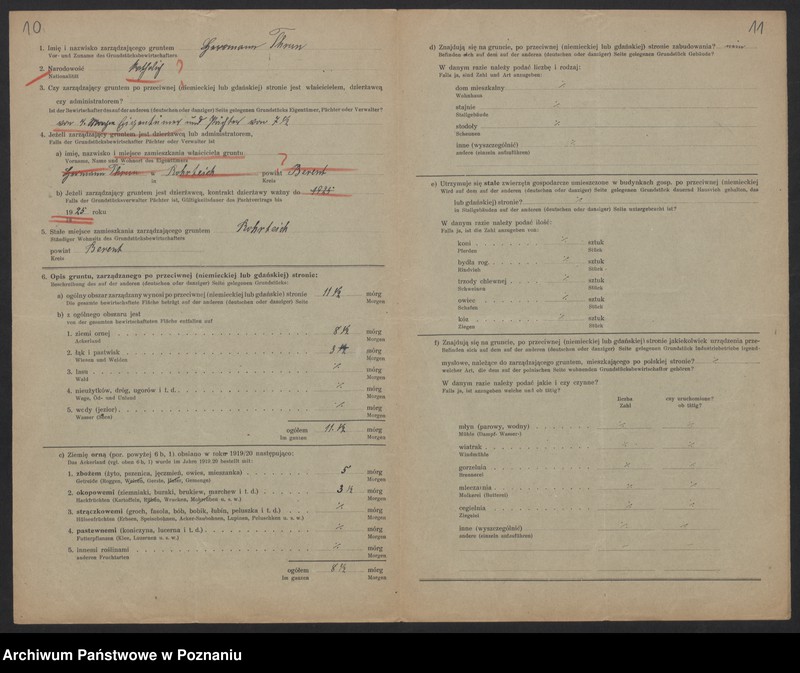 10.
1. Imię i nazwisko zarządzającego gruntem Hermann Thrun
Vor- und Zuname des Grundstücksbewirtschafters
2. Narodowość katholisch ?
Nationalität
3. Czy zarządzający gruntem po przeciwnej (niemieckiej lub gdańskiej) stronie jest właścicielem, dzierżawcą
czy administratorem?
Ist der Bewirtschafter des auf der anderen (deutschen oder danziger) Seite gelegenen Grundstücks Eigentümer, Pächter oder Verwalter?
von 4 Morgen Eigentümer und Pächter von 7 ½
4. Jeżeli zarządzający gruntem jest dzierżawcą lub administratorem,
Falls der Grundstücksbewirtschafter Pächter oder Verwalter ist
a) imię, nazwisko i miejsce zamieszkania właściciela gruntu
Vorname, Name und Wohnort des Eigentümers
Hermann Thrun w Rohrteich powiat Berent ?
in Kreis
b) Jeżeli zarządzający gruntem jest dzierżawcą, kontrakt dzierżawy ważny do 1925
Falls der Grundstücksverwalter Pächter ist, Gültigkeitsdauer des Pachtvertrags bis
1925 roku
5. Stałe miejsce zamieszkania zarządzającego gruntem Rohrteich
Ständiger Wohnsitz des Grundstücksbewirtschafters
powiat Berent
Kreis
6. Opis gruntu, zarządzanego po przeciwnej (niemieckiej lub gdańskiej) stronie:
Beschreibung des auf der anderen (deutschen oder danziger) Seite gelegenen Grundstücks:
a) ogólny obszar zarządzany wynosi po przeciwnej (niemieckiej lub gdańskiej) stronie 11 ½ mórg
Die gesamte bewirtschaftete Fläche beträgt auf der anderen (deutschen oder danziger) Seite Morgen
b) z ogólnego obszaru jest
von der gesamten bewirtschafteten Fläche entfallen auf
1. ziemi ornej 8 ½ mórg
Ackerland Morgen
2. łąk i pastwisk 3 mórg
Wiesen und Weiden Morgen
3. lasu ⁒ mórg
Wald Morgen
4. nieużytków, dróg, ugorów i t. d. ⁒ mórg
Wege, Öd- und Unland Morgen
5. wody (jezior) ⁒ mórg
Wasser (Seen) Morgen
ogółem 11 ½ mórg
Im ganzen Morgen
c) Ziemię orną (por. powyżej 6 b, 1) obsiano w roku 1919/20 następująco:
Das Ackerland (vgl. oben 6 b, 1) wurde im Jahre 1919/20 bestellt mit:
1. zbożem (żyto, pszenica, jęczmień, owies, mieszanka) 5 mórg
Getreide (Roggen, Weizen, Gerste, Hafer, Gemenge) Morgen
2. okopowemi (ziemniaki, buraki, brukiew, marchew i t. d.) 3 ½ mórg
Hackfrüchten (Kartoffeln, Rüben, Wrucken, Mohrrüben u. s. w.) Morgen
3. strączkowemi (groch, fasola, bób, bobik, łubin, peluszka i t. d.) ⁒ mórg
Hülsenfrüchten (Erbsen, Speisebohnen, Acker-Saubohnen, Lupinen, Peluschken u. s. w.) Morgen
4. pastewnemi (koniczyna, lucerna i t. d.) ⁒ mórg
Futterpflanzen (Klee, Luzernen u. s. w.) Morgen
5. innemi roślinami ⁒ mórg
anderen Fruchtarten Morgen
ogółem 8 ½ mórg
Im ganzen Morgen
11
d) Znajdują się na gruncie, po przeciwnej (niemieckiej lub gdańskiej) stronie zabudowania? nein
Befinden sich auf dem auf der anderen (deutschen oder danziger) Seite gelegenen Grundstück Gebäude?
W danym razie należy podać liczbę i rodzaj:
Falls ja, sind Zahl und Art anzugeben:
dom mieszkalny ⁒
Wohnhaus
stajnie ⁒
Stallgebäude
stodoły ⁒
Scheunen
inne (wyszczególnić) ⁒
andere (einzeln aufzuführen)
e) Utrzymuje się stale zwierzęta gospodarcze umieszczone w budynkach gosp. po przeciwnej (niemieckiej
Wird auf dem auf der anderen (deutschen oder danziger) Seite gelegenen Grundstück dauernd Hausvieh gehalten, das
lub gdańskiej) stronie? ⁒
in Stallgebäuden auf der anderen (deutschen oder danziger) Seite untergebracht ist?
W danym razie należy podać ilość:
Falls ja, ist die Zahl anzugeben von:
koni ⁒ sztuk
Pferden Stück
bydła rog. ⁒ sztuk
Rindvieh Stück
trzody chlewnej ⁒ sztuk
Schweinen Stück
owiec ⁒ sztuk
Schafen Stück
kóz ⁒ sztuk
Ziegen Stück
f) Znajdują się na gruncie, po przeciwnej (niemieckiej lub gdańskiej) stronie jakiekolwiek urządzenia prze-
Befinden sich auf dem auf der anderen (deutschen oder danziger) Seite gelegenen Grundstück Industriebetriebe (irgend-
mysłowe, należące do zarządzającego gruntem, mieszkającego po polskiej stronie? ⁒
welcher Art, die dem auf der polnischen Seite wohnenden Grundstücksbewirtschafter gehören?
W danym razie należy podać jakie i czy czynne?
Falls ja, ist anzugeben welche und ob tätig?
liczba czy uruchomione?
Zahl ob tätig?
młyn (parowy, wodny) ⁒ ⁒
Mühle (Dampf- Wasser-)
wiatrak ⁒ ⁒
Windmühle
gorzelnia ⁒ ⁒
Brennerei
mleczarnia ⁒ ⁒
Molkerei (Butterei)
cegielnia ⁒ ⁒
Ziegelei
inne (wyszczególnić) ⁒ ⁒
andere (einzeln aufzuführen)
Archiwum Państwowe w Poznaniu